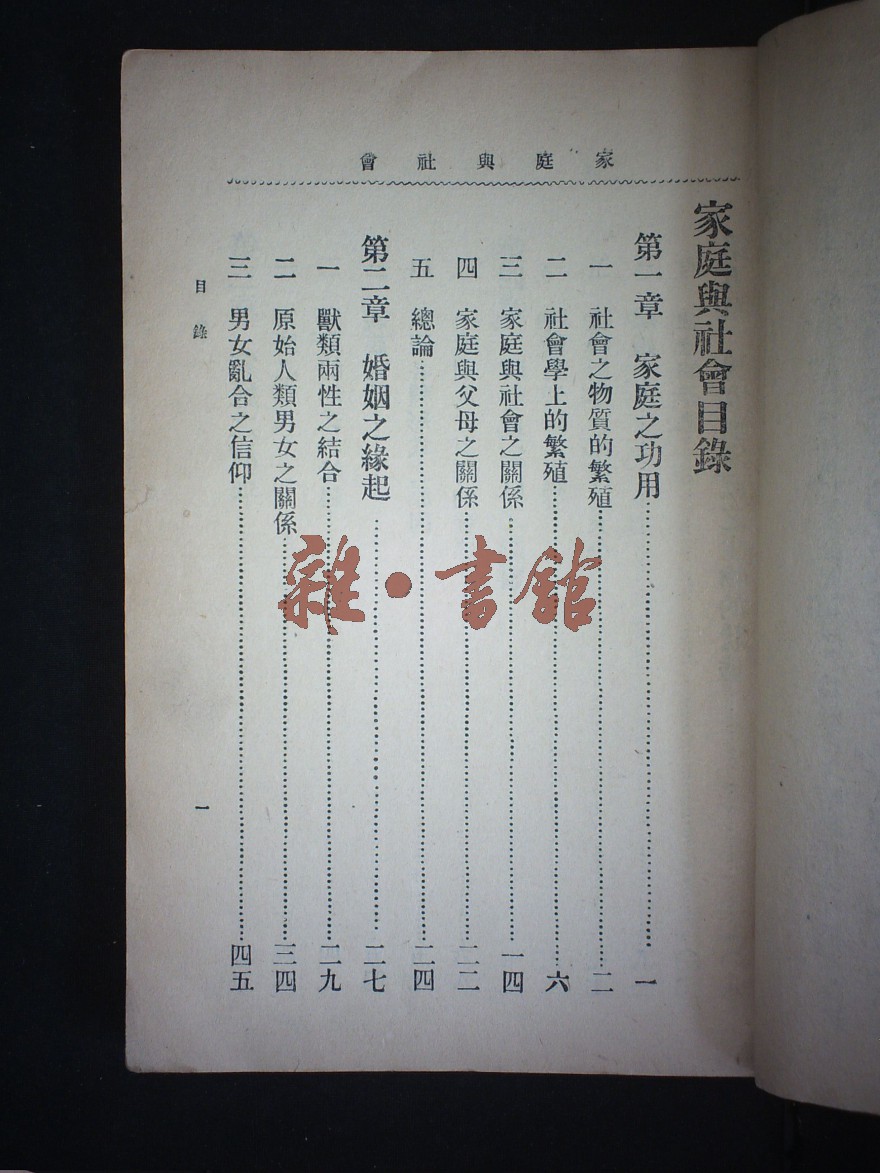 家庭與社會
家庭與社會目錄
第一章 家庭之功用……一
一 社會之物質的繁殖……二
二 社會學上的繁殖……六
三 家庭與社會之關係……一四
四 家庭與父母之關係……二二
五 總論……二四
第二章 婚姻之緣起……二七
一 獸類兩性之結合……二九
二 原始人類男女之關係……三四
三 男女亂合之信仰……四五
目錄 一
雜·書館